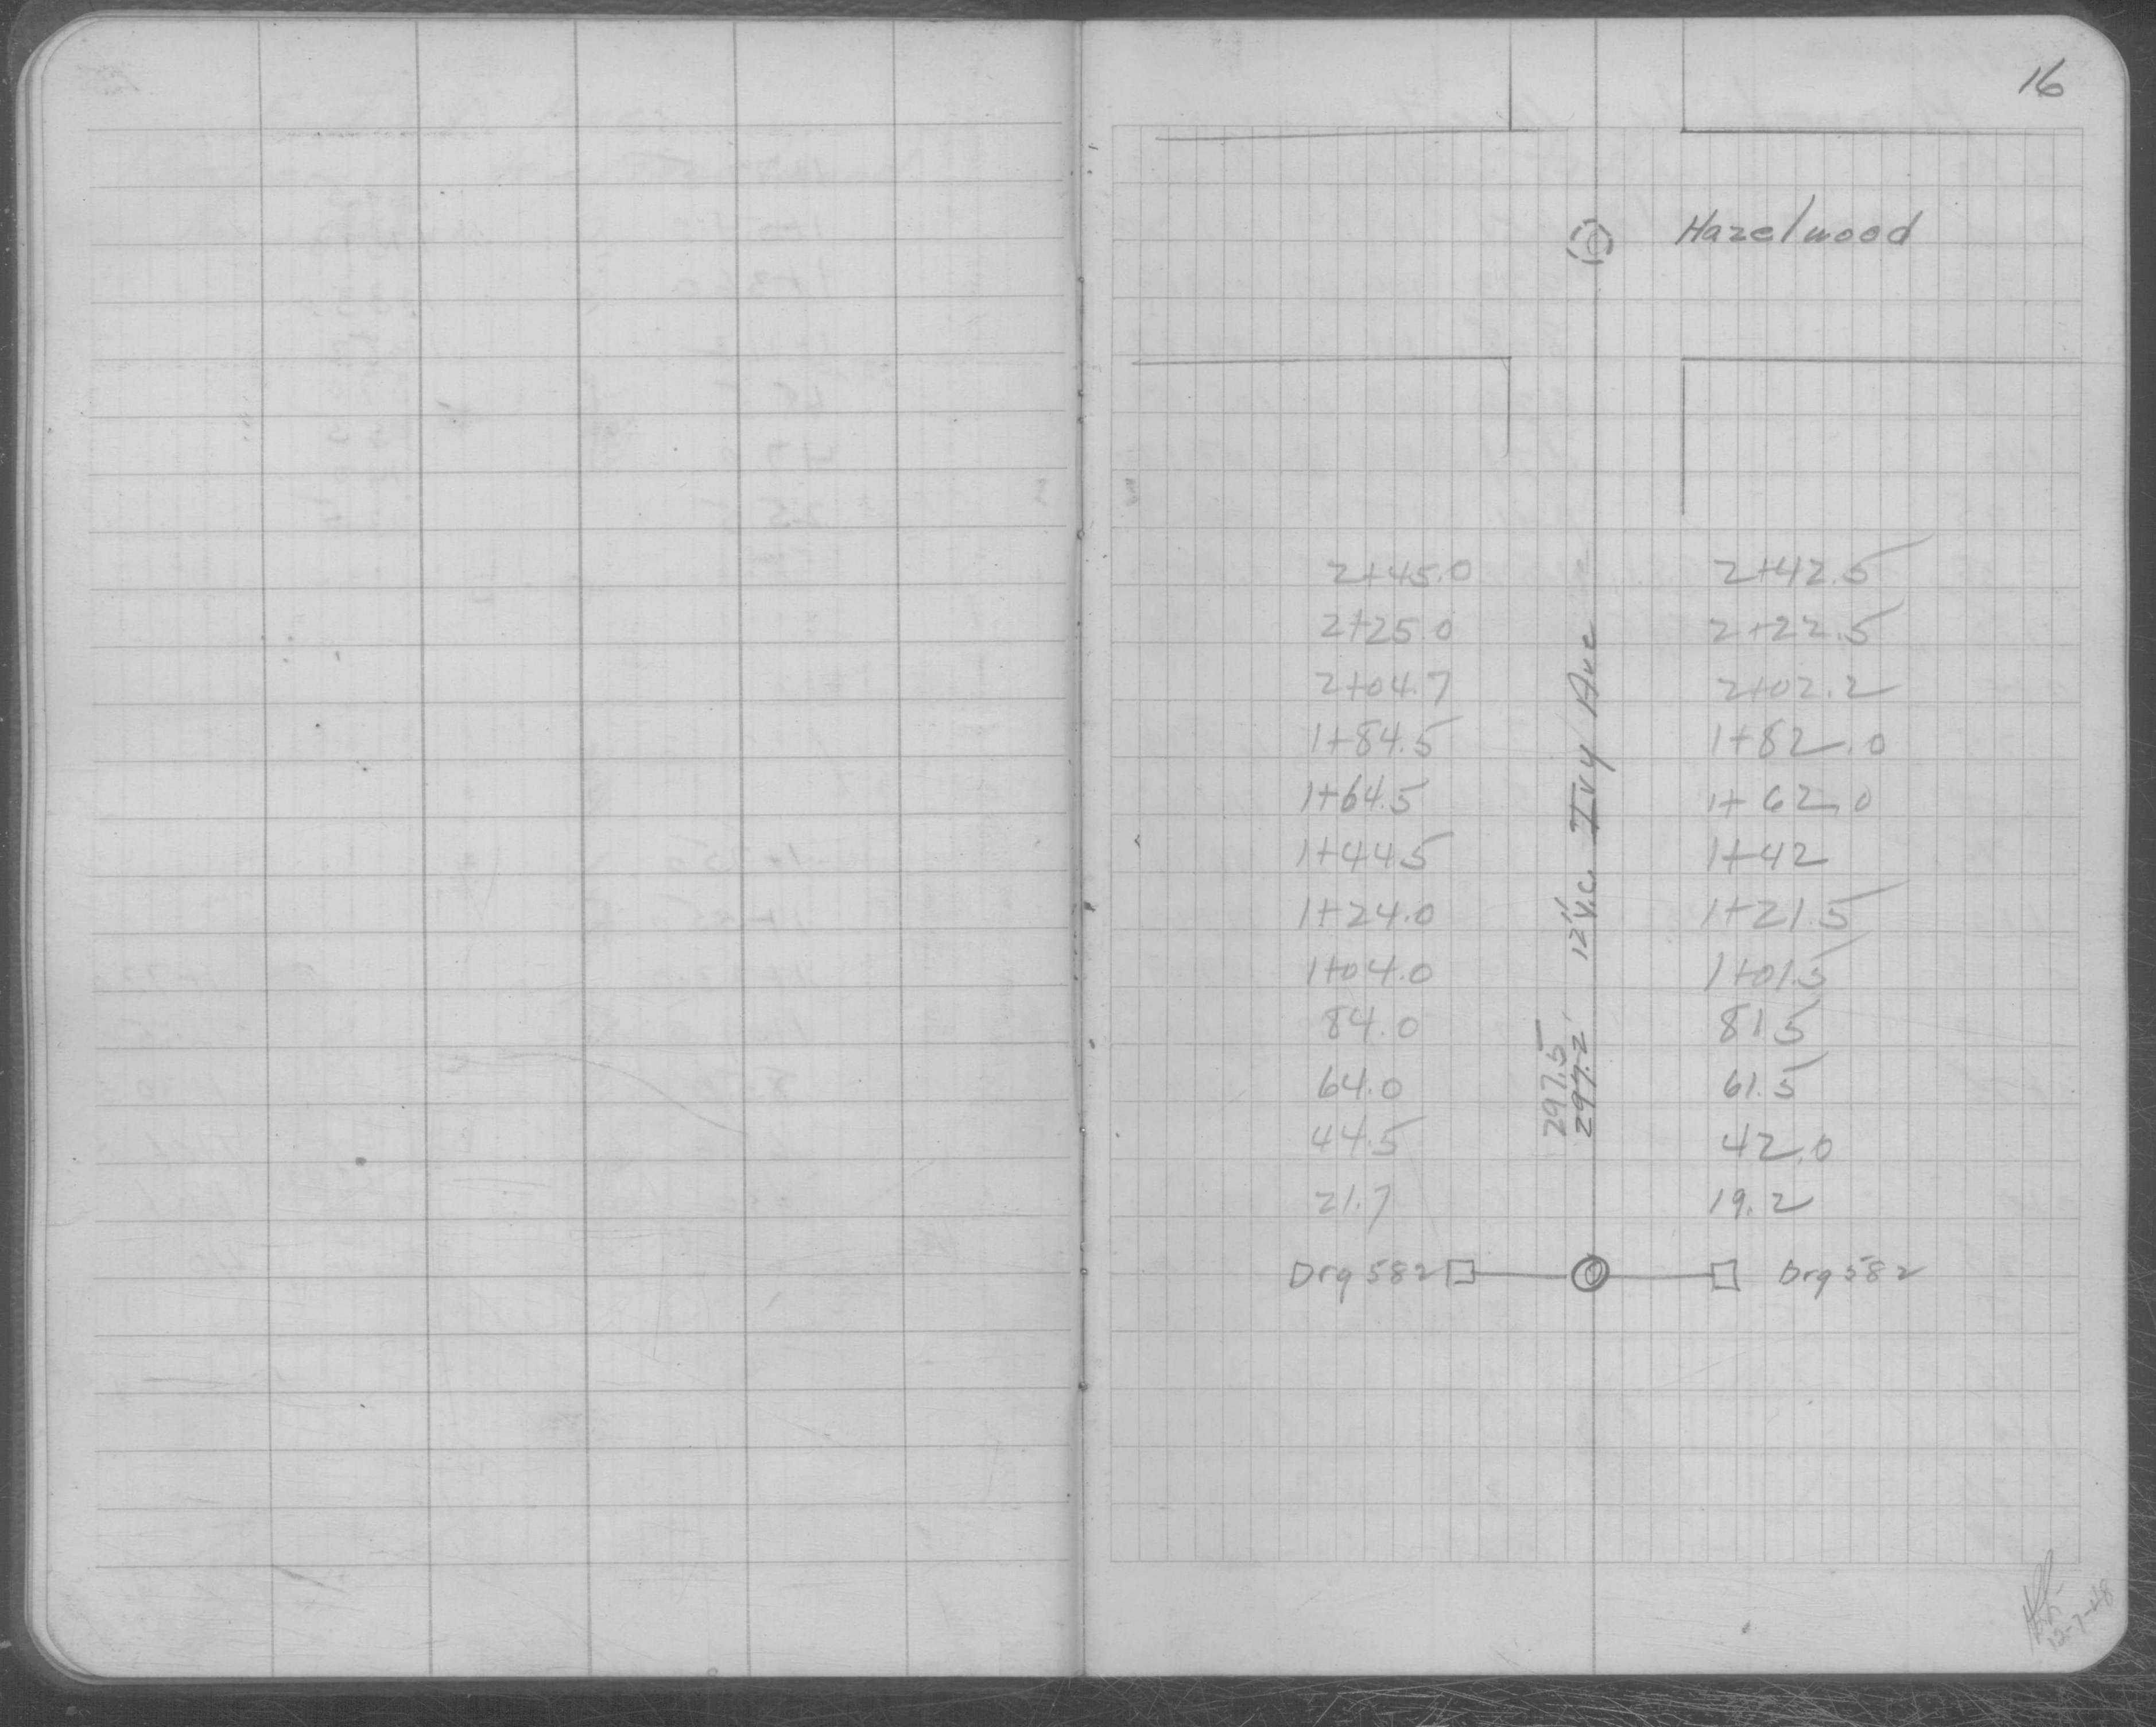 16
Hazelwood
2+45.0 2+42.5
2+25.0 2+22.5
2+04.7 2+02.2
1+84.5 1+82.0
1+64.5 1+62.0
1+44.5 1+42
1+24.0 1+21.5
1+04.0 1+01.5
84.0 81.5
64.0 61.5
44.5 42.0
21.7 19.2
297.5
297.2' 12" V.C. Ivy Ave
Drg 582 Drg 582
12-7-48